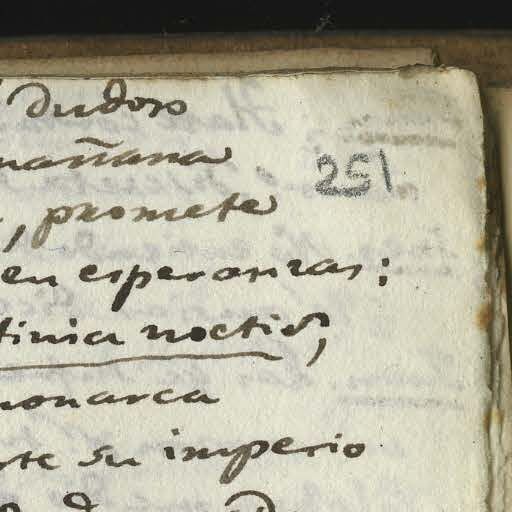 dudoso
mañana
251
, promete
en esperanzas;
tinia noctis,
monarca
rte su imperio